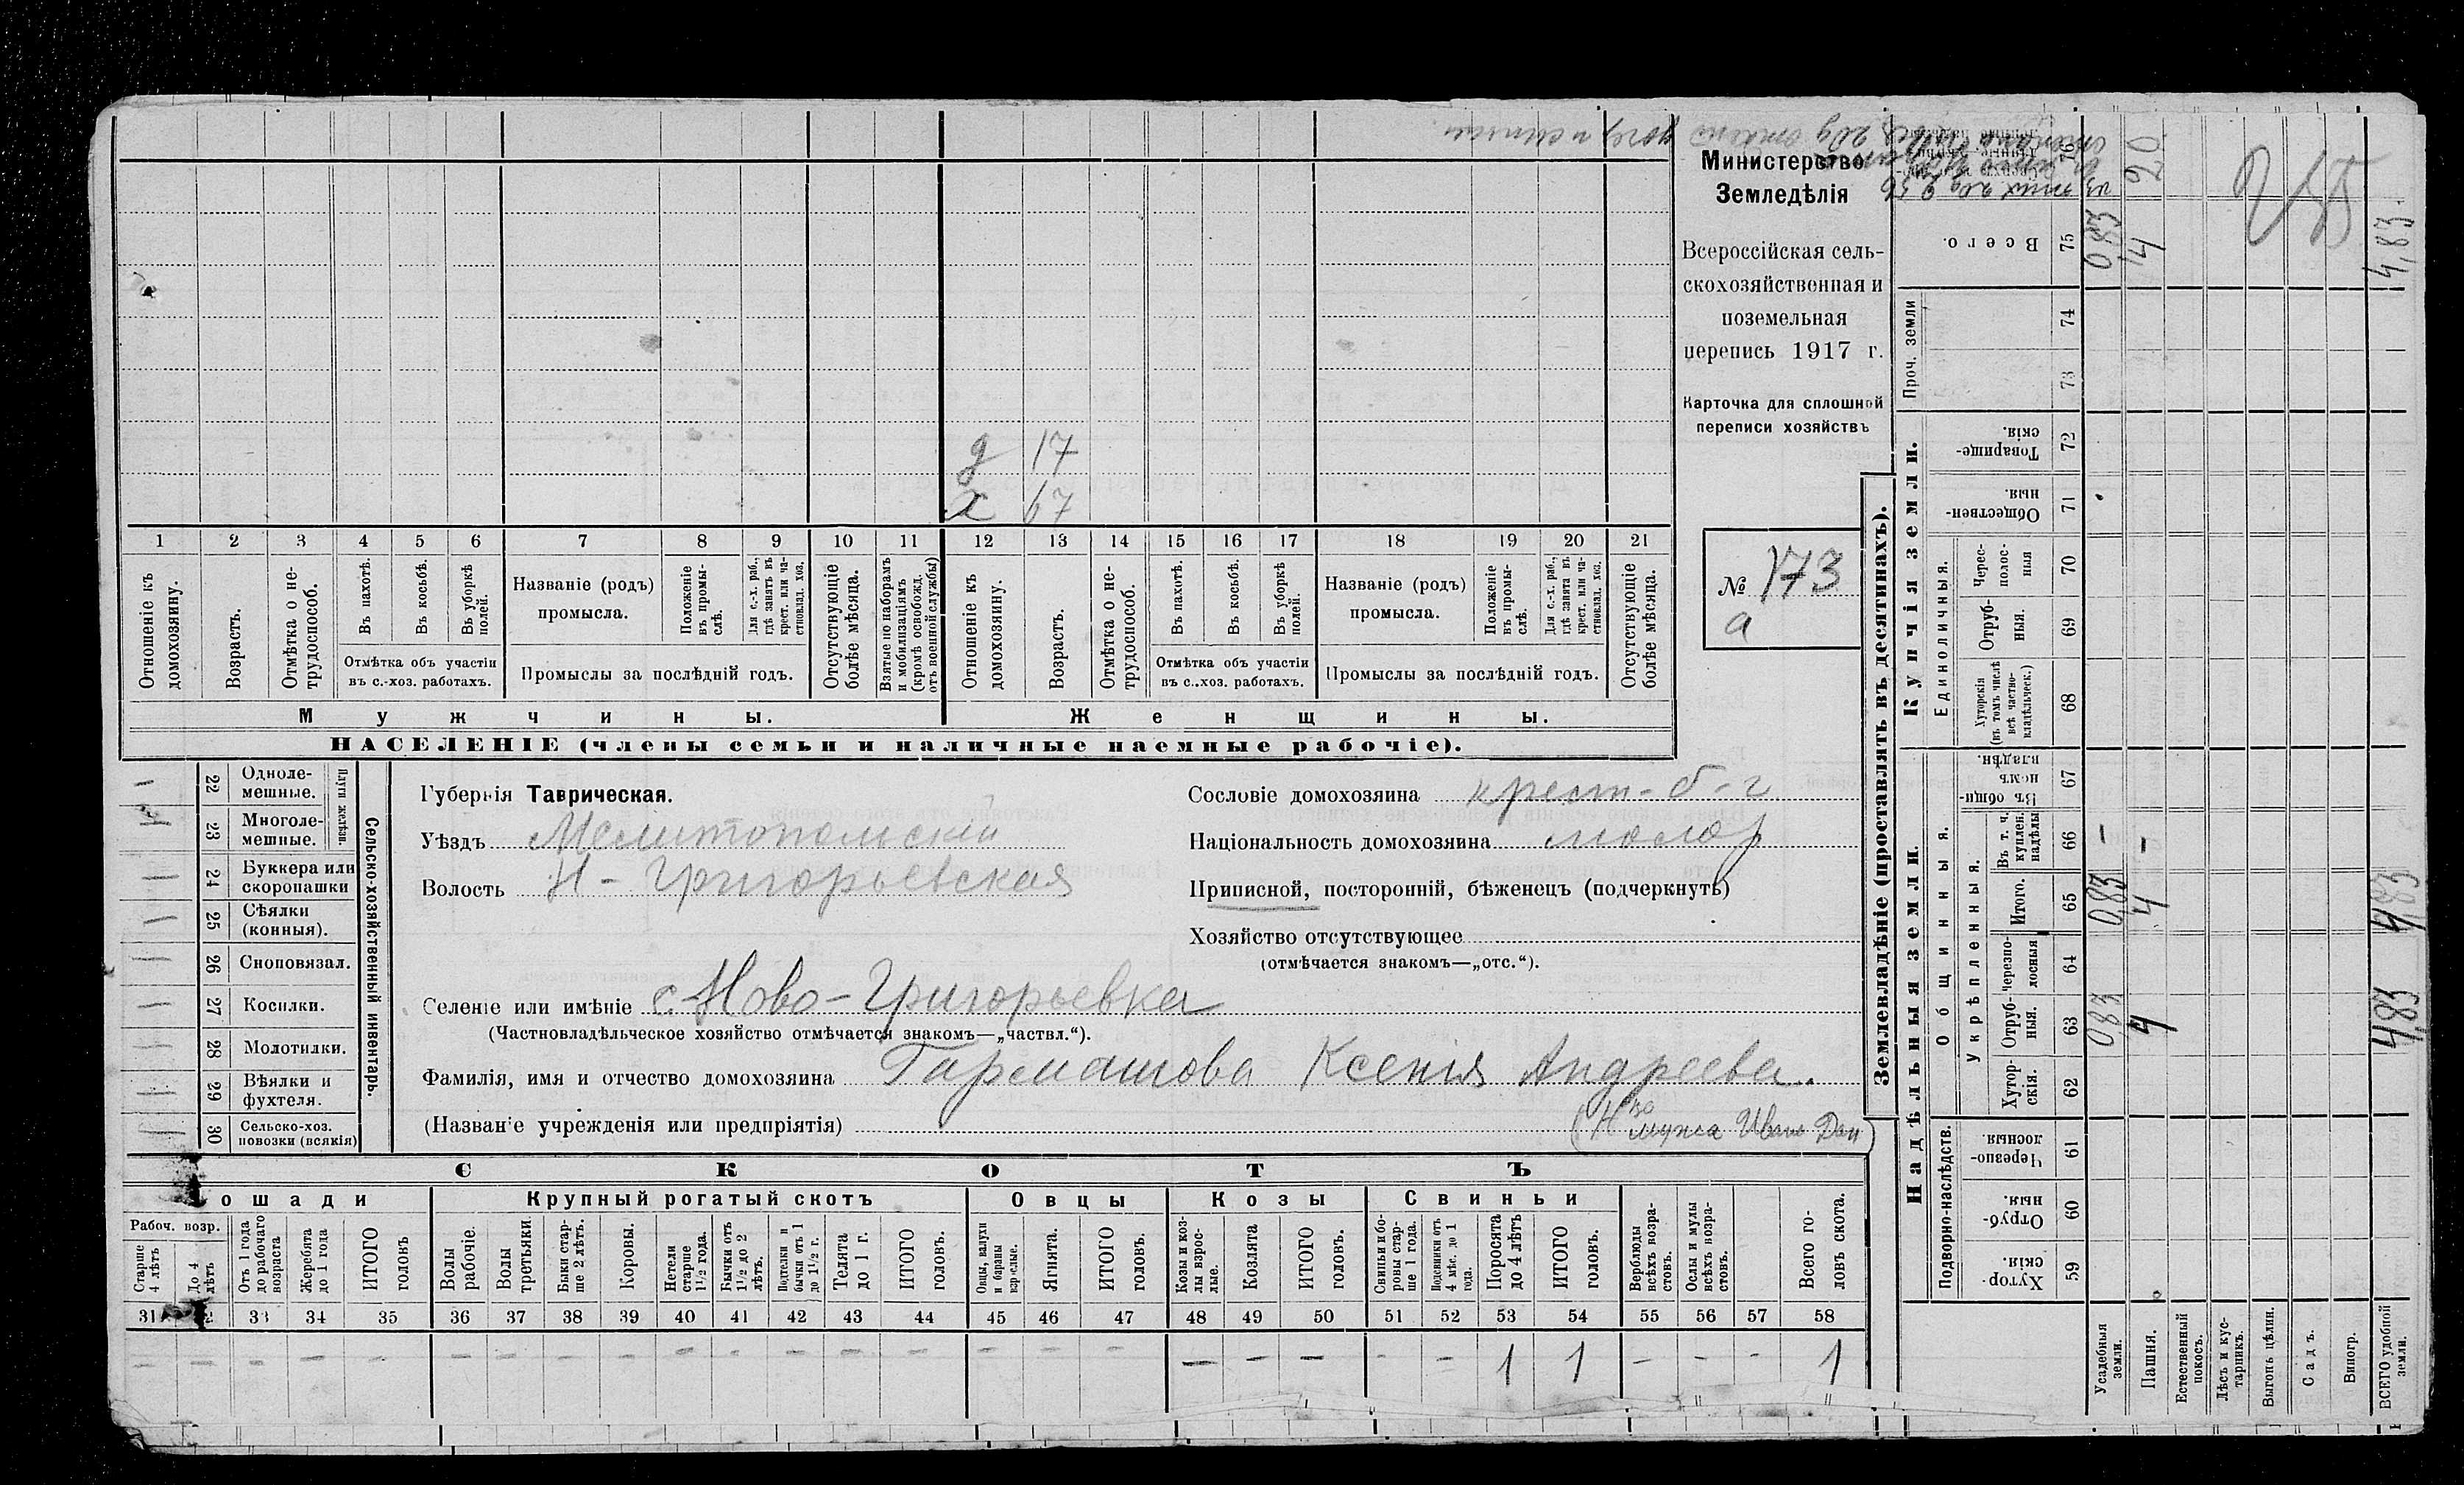 Министерство
Земледѣлія
Всероссійская сель-
скохозяйственная и
поземельная
перепись 1917 г.
Карточка для сплошной
переписи хозяйствъ
№ 173
а
д 17
х 67
1 2 3 4 5 6 7 8 9 10 11 12 13 14 15 16 17 18 19 20 21
Отношеніе къ домохозяину.
Возрастъ.
Отмѣтка о не-трудоспособ.
Въ пахотѣ.
Въ косьбѣ.
Въ уборкѣ полей.
Отмѣтка объ участіи
въ с.-хоз. работахъ.
Названіе (родъ)
промысла.
Положеніе въ промы-слѣ.
Для с.-х. раб., гдѣ занятъ въ крест. или ча-стновлад. хоз.
Промыслы за послѣдній годъ.
Отсутствующіе болѣе мѣсяца.
Взятые по наборамъ и мобилизаціямъ (кромѣ освобожд. отъ военной службы)
Отношеніе къ домохозяину.
Возрастъ.
Отмѣтка о не-трудоспособ.
Въ пахотѣ.
Въ косьбѣ.
Въ уборкѣ полей.
Отмѣтка объ участіи
въ с.-хоз. работахъ.
Названіе (родъ)
промысла.
Положеніе въ промы-слѣ.
Для с.-х. раб., гдѣ занятъ въ крест. или ча-стновлад. хоз.
Промыслы за послѣдній годъ.
Отсутствующіе болѣе мѣсяца.
Мужчины. Женщины.
НАСЕЛЕНІЕ (члены семьи и наличные наемные рабочіе).
Сельско-хозяйственный инвентарь.
Плуги желѣзн.
22 Одноле-мешные.
23 Многоле-мешные.
24 Буккера или скоропашки
25 Сѣялки (конныя).
26 Сноповязал.
27 Косилки.
28 Молотилки.
29 Вѣялки и фухтеля.
30 Сельско-хоз. повозки (всякія)
Губернія Таврическая.
Уѣздъ Мелитопольскій
Волость Н-Григорьевская
Сословіе домохозяина крест-б-г
Національность домохозяина малор
Приписной, посторонній, бѣженецъ (подчеркнуть)
Хозяйство отсутствующее
(отмѣчается знакомъ—„отс.“).
Селеніе или имѣніе с. Ново-Григорьевка
(Частновладѣльческое хозяйство отмѣчается знакомъ—„частвл.“).
Фамилія, имя и отчество домохозяина Гармашова Ксенія Андреева.
(Названіе учрежденія или предпріятія) мужа Ивана Дан
СКОТЪ
Лошади Крупный рогатый скотъ Овцы Козы Свиньи
Рабоч. возр.
Старше 4 лѣтъ
До 4 лѣтъ
Отъ 1 года до рабочаго возраста
Жеребята до 1 года
ИТОГО головъ
Волы рабочіе.
Волы третьяки.
Быки стар-ше 2 лѣтъ.
Коровы.
Нетели старше 1½ года.
Бычки отъ 1½ до 2 лѣтъ.
Подтелки и бычки отъ 1 до 1½ г.
Телята до 1 г.
ИТОГО головъ.
Овцы, валухи и бараны взрослые.
Ягнята.
ИТОГО головъ.
Козы и коз-лы взрос-лые.
Козлята
ИТОГО головъ.
Свиньи и бо-ровы стар-ше 1 года.
Подсвинки отъ 4 мѣс. до 1 года.
Поросята до 4 лѣтъ
ИТОГО головъ.
Верблюды всѣхъ возра-стовъ.
Ослы и мулы всѣхъ возра-стовъ.
Всего го-ловъ скота.
31 33 34 35 36 37 38 39 40 41 42 43 44 45 46 47 48 49 50 51 52 53 54 55 56 57 58
– – – – – – – – – – – – – – – – – – – – – – 1 1 – – – 1
Землевладѣніе (проставлять въ десятинахъ).
Надѣльныя земли. Купчія земли. Проч. земли
Подворно-наслѣдств.
Общинныя.
Укрѣпленныя.
Единоличныя.
Хутор-скія. 59
Отруб-ныя. 60
Черезпо-лосныя. 61
Хутор-скія. 62
Отруб-ныя. 63
Черезпо-лосныя 64
Итого. 65
Въ т. ч. куплен. надѣлы 66
Въ общи-номъ владѣн. 67
Хуторскія (въ томъ числѣ всѣ частно-владѣльческ.) 68
Отруб-ныя. 69
Черес-полос-ныя 70
Обществен-ныя. 71
Товарище-скія. 72
73
74
Всего. 75
76
Усадебныя земли. 0,83 0,83 – 0,83
Пашня. 4 4 – 14 20
Естественный покосъ.
Лѣсъ и кус-тарникъ.
Выгонъ цѣлин.
Садъ.
Виногр.
ВСЕГО удобной земли. 4,83 4,83 4,83